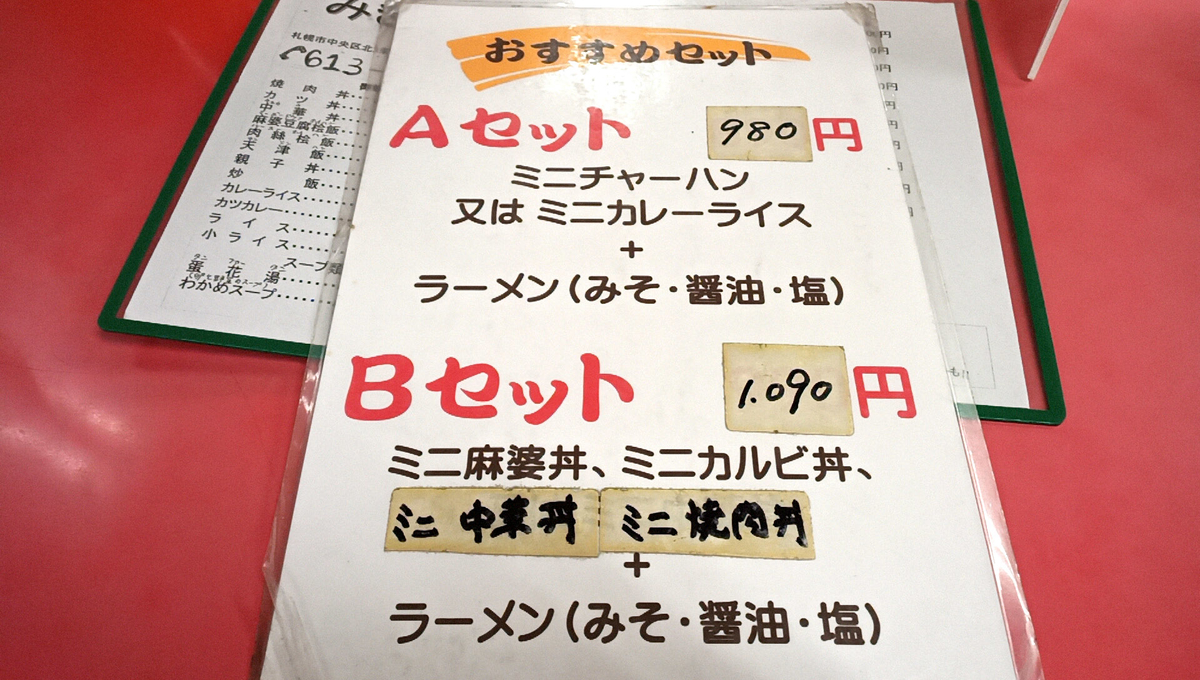 おすすめセット
Aセット 980円
ミニチャーハン
又は ミニカレーライス
+
ラーメン(みそ・醤油・塩)
Bセット 1.090円
ミニ麻婆丼、ミニカルビ丼、
ミニ 中華丼 ミニ焼肉丼
+
ラーメン(みそ・醤油・塩)
札幌市中央区北
613
焼肉丼
カツ丼
中華丼
麻婆豆腐桧飯
肉絲桧飯
天津飯
親子丼
炒飯
カレーライス
カツカレー
ライス
小ライス
スープ
蛋花湯
わかめスープ